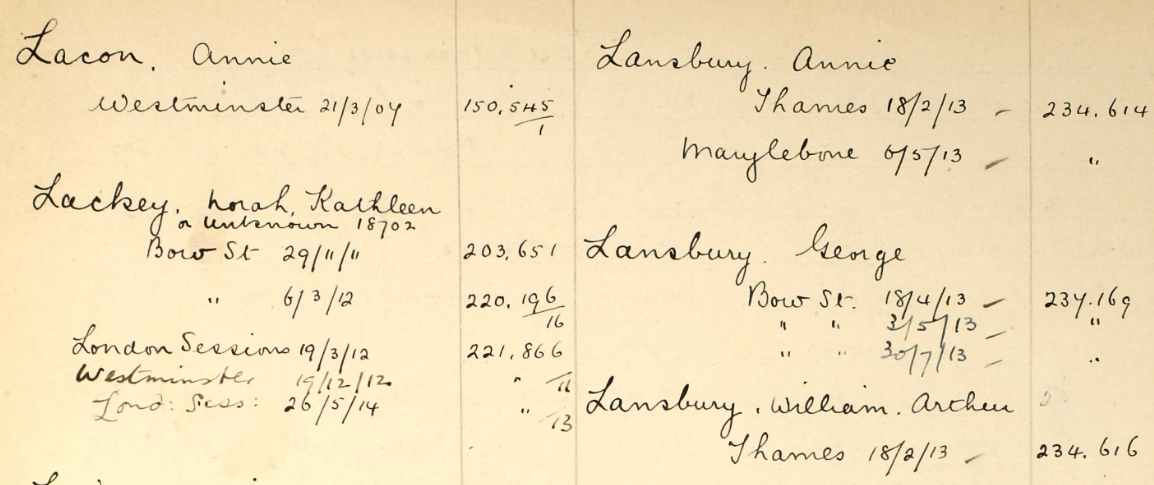 Lacon, Annie
Westminster 21/3/07 150,545/1
Lackey, Norah, Kathleen
or Unknown 18702
Bow St 29/11/11 203,651
" 6/3/12 220,196/16
London Sessions 19/3/12 221,866
Westminster 19/12/12 " /11
Lond: Sess: 26/5/14 " /13
Lansbury, Annie
Thames 18/2/13 - 234,614
Marylebone 6/5/13 - "
Lansbury, George
Bow St. 18/4/13 - 237,169
" " 3/5/13 - "
" " 30/7/13 - "
Lansbury, William, Arthur
Thames 18/2/13 - 234,616